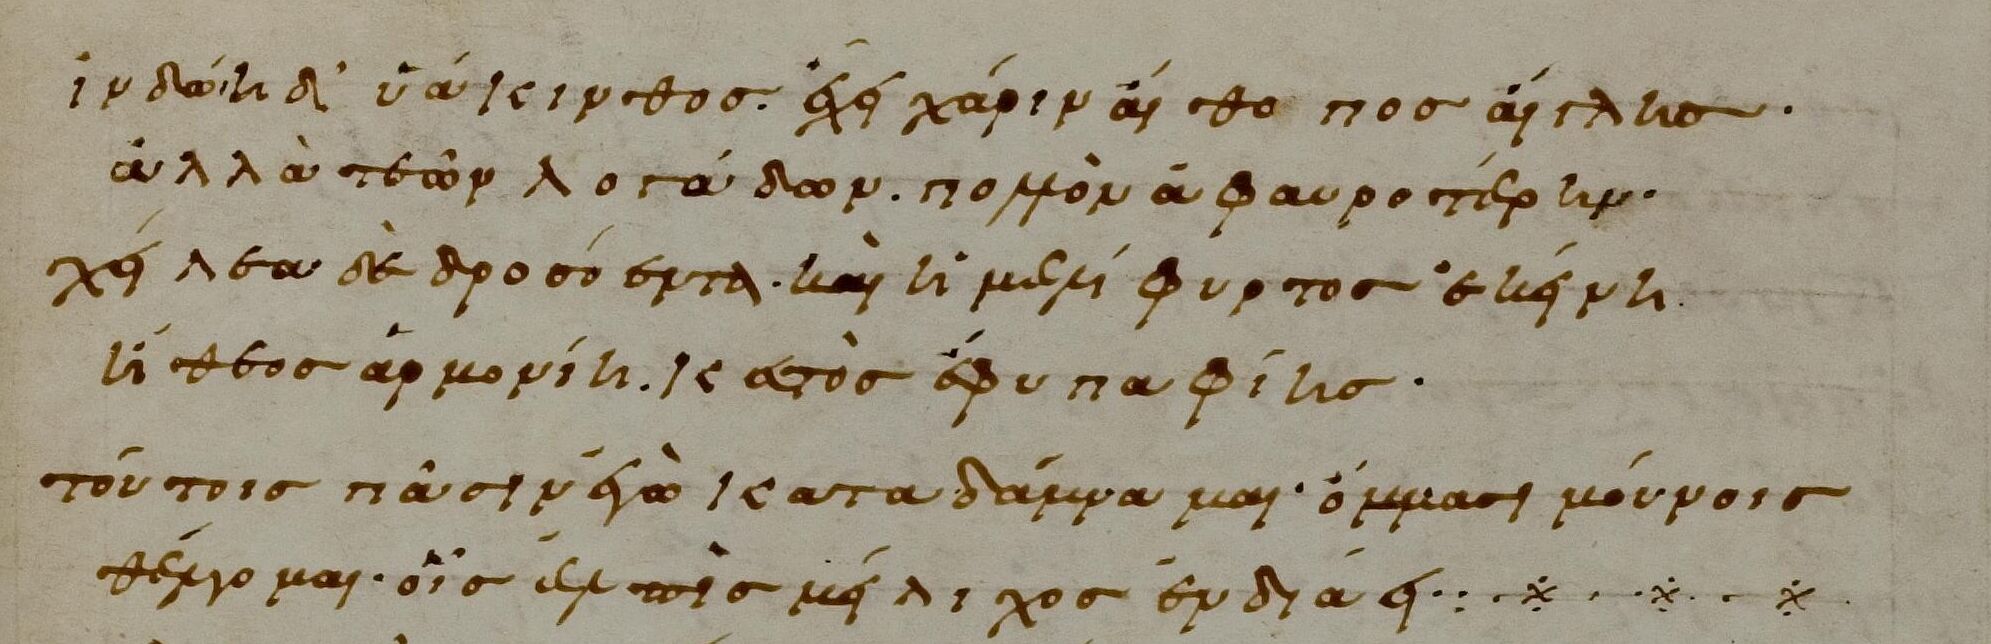 ἰνδώη δ' ὑάκινθος. ἔχει χάριν αἴθοπος αἴγλης.
ἀλλὰ τεῶν λογάδων. πολλὸν ἀφαυροτέρην.
χείλεα δὲ δροσόεντα. καὶ ἡ μελίφυρτος ἐκείνη
ἤθεος ἁρμονίη. κεστὸς ἔφυ παφίης.
τούτοις πᾶσιν ἐγὼ καταδάμναμαι. ὄμμασι μούνοις
θέλγομαι. οἷς ἐλπὶς μείλιχος ἐνδιάει